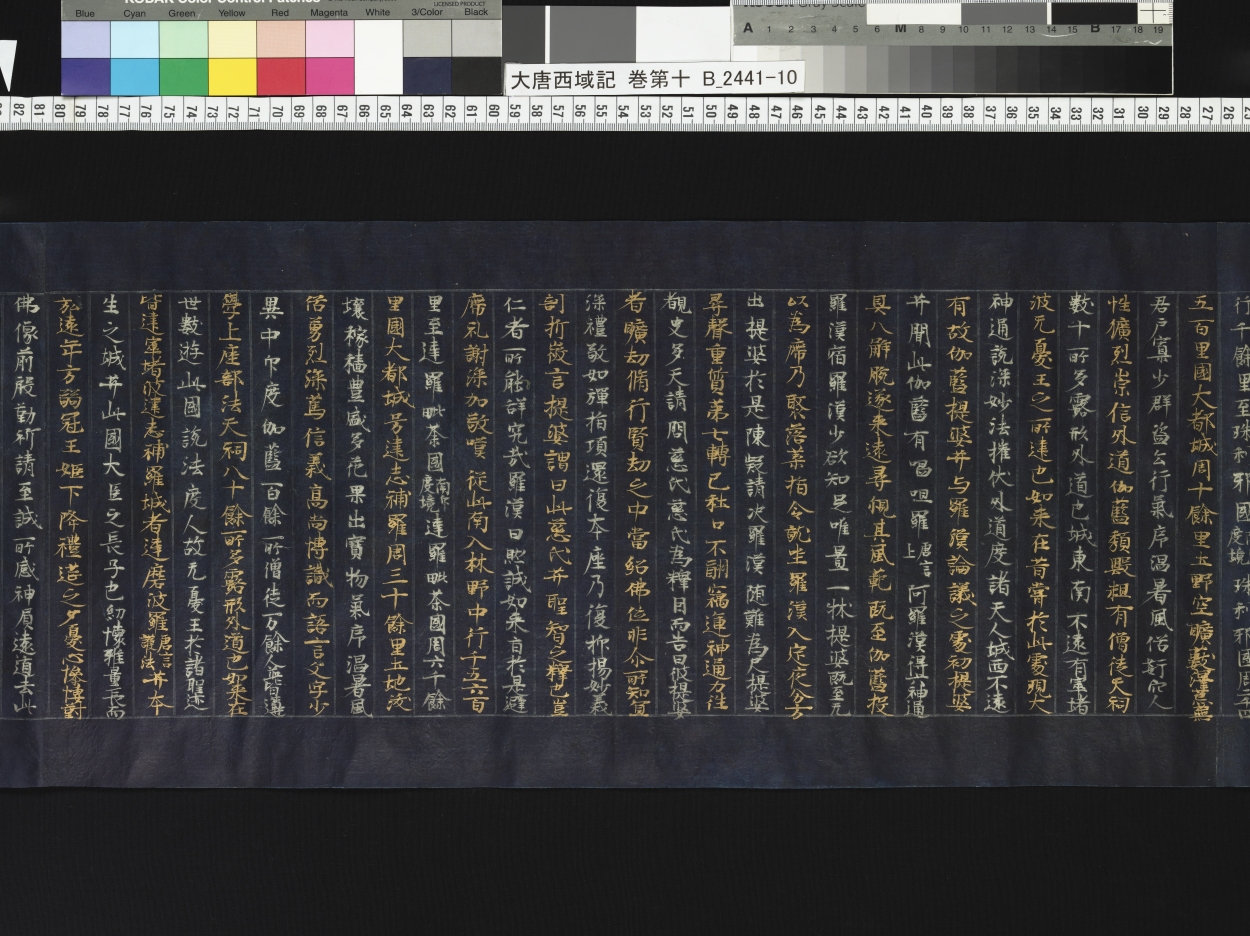 Blue Cyan Green Yellow Red Magenta White 3/Color Black
大唐西域記 巻第十 B_2441-10
行千餘里至珠利耶國度境珠利耶國周二千四
五百里國大都城周十餘里土野空曠藪澤荒蕪
居戶寡少群盜公行氣序溫暑風俗姧宄人
性獷烈崇信外道伽藍頽毀粗有僧徒天祠
數十所多露形外道也城東南不遠有窣堵
波无憂王之所建也如來在昔甞於此處現大
神通說深妙法摧伏外道度諸天人城西不遠
有故伽藍提婆𦬇与羅漢論議之處初提婆
𦬇聞此伽藍有嗢呾羅唐言上阿羅漢得六神通
具八解脫遂來遠尋觀其風範既至伽藍投
羅漢宿羅漢少欲知足唯置一牀提婆既至无
以為席乃聚落葉指令就坐羅漢入定夜分方
出提婆於是陳疑請決羅漢隨難為尺提婆
尋聲重質第七轉已杜口不酬竊運神通力往
覩史多天請問慈氏慈氏為釋因而告曰彼提婆
者曠劫脩行賢劫之中當紹佛位非尒所知宜
深禮敬如彈指頃還復本座乃復抑揚妙義
剖析微言提婆謂曰此慈氏𦬇聖智之釋也豈
仁者所能詳究哉羅漢曰然誠如來旨於是避
席礼謝深加敬嘆從此南入林野中行千五六百
里至達羅毗荼國南印度境達羅毗荼國周六千餘
里國大都城号達志補羅周三十餘里土地沃
壤稼穡豊盛多花果出寶物氣序溫暑風
俗勇烈深篤信義髙尚博識而語言文字少
異中印度伽藍百餘所僧徒万餘人皆遵
學上座部法天祠八十餘所多露形外道也如來在
世數遊此國說法度人故无憂王於諸聖迹
皆建窣堵波達志補羅城者達磨波羅唐言護法𦬇本
生之城𦬇此國大臣之長子也幼懷雅量長而
弘遠年方弱冠王姬下降禮筵之夕憂心慘悽對
佛像前殷勤祈請至誠所感神負遠遁去此